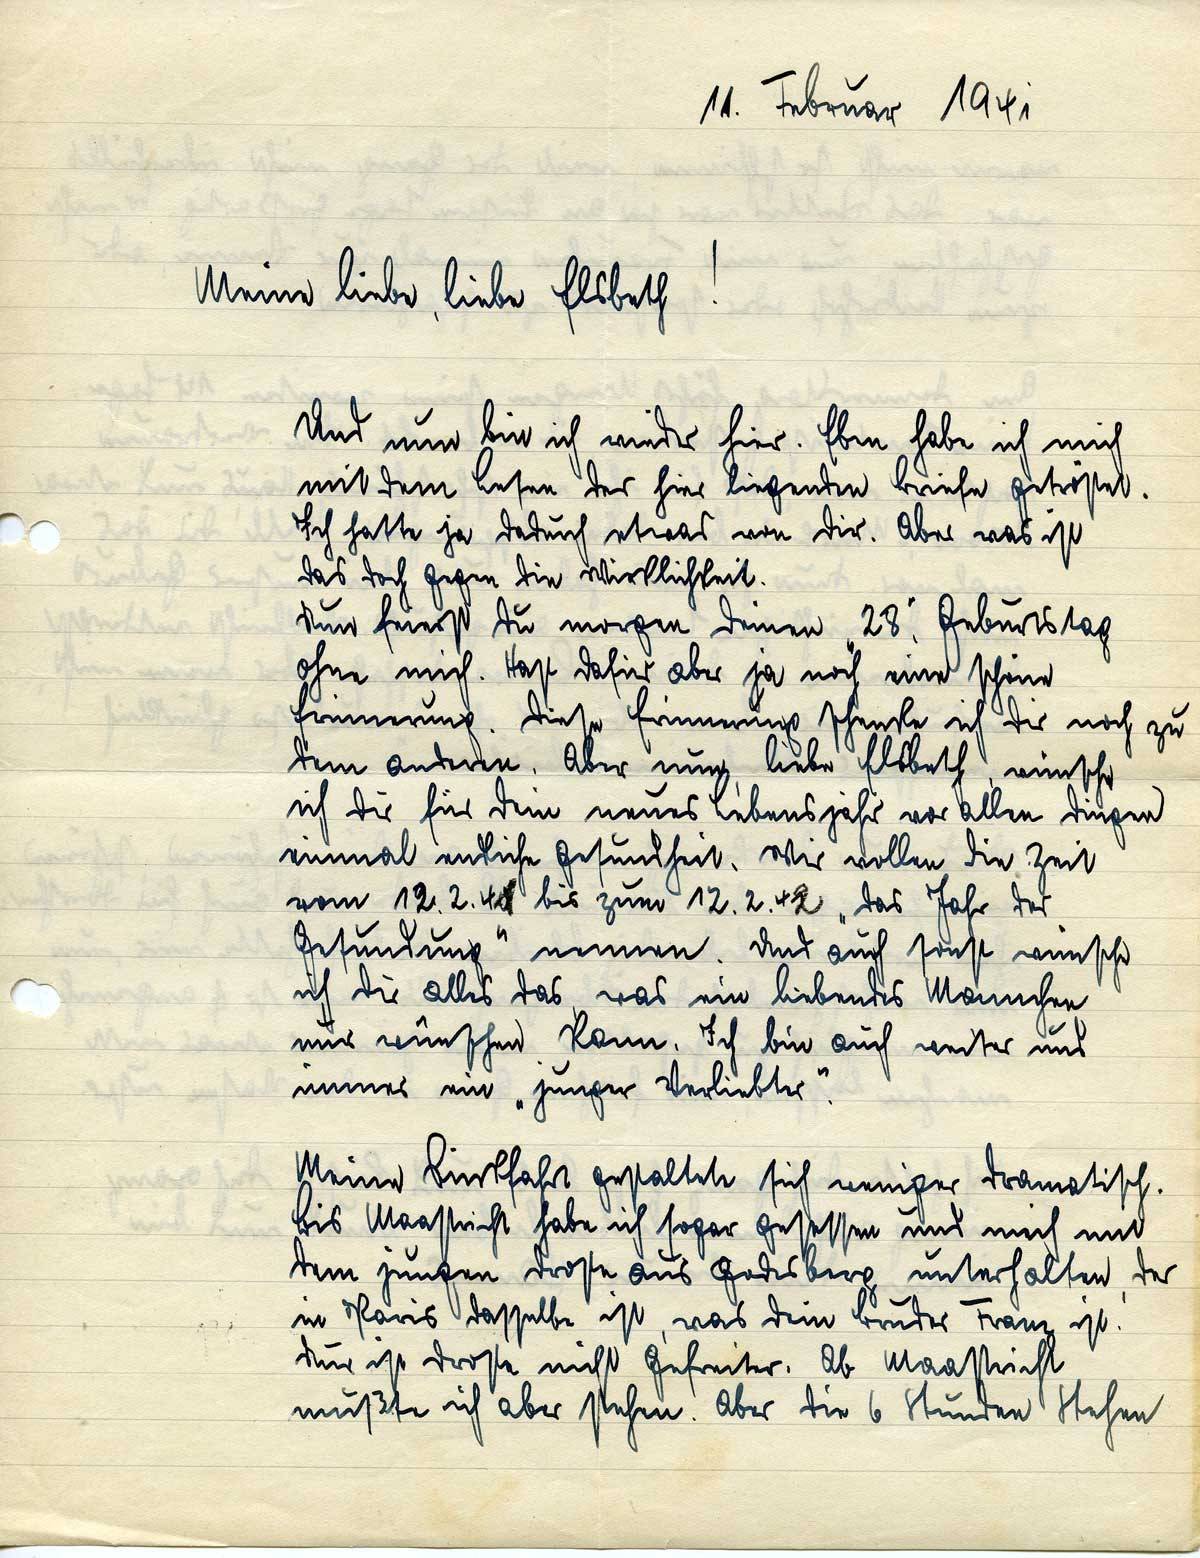 11. Februar 1941
Meine liebe, liebe Elsbeth!
Und nun bin ich wieder hier. Eben habe ich mich
mit dem Lesen der hier liegenden Briefe getröstet.
Ich hatte ja dadurch etwas von Dir. Aber was ist
das doch gegen die Wirklichkeit.
Nun feierst Du morgen Deinen „28." Geburtstag
ohne mich. Hast dafür aber ja noch eine schöne
Erinnerung. Diese Erinnerung schenke ich Dir noch zu
dem anderen. Aber nun, liebe Elsbeth, wünsche
ich Dir für Dein neues Lebensjahr vor allen Dingen
einmal endliche Gesundheit. Wir wollen die Zeit
vom 12.2.41 bis zum 12.2.42 „das Jahr der
Gesundung" nennen. Und auch sonst wünsche
ich Dir alles das, was ein liebendes Mannchen
nur wünschen kann. Ich bin auch weiter und
immer ein „junger Verliebter".
Meine Rückfahrt gestaltete sich weniger dramatisch.
Bis Maastricht habe ich sogar gesessen und mich mit
dem jungen Droste aus Godesberg unterhalten, der
in Paris dasselbe ist, was dein Bruder Franz ist.
Nur ist Droste nicht Gefreiter. Ab Maastricht
mußte ich aber stehen. Aber die 6 Stunden Stehen